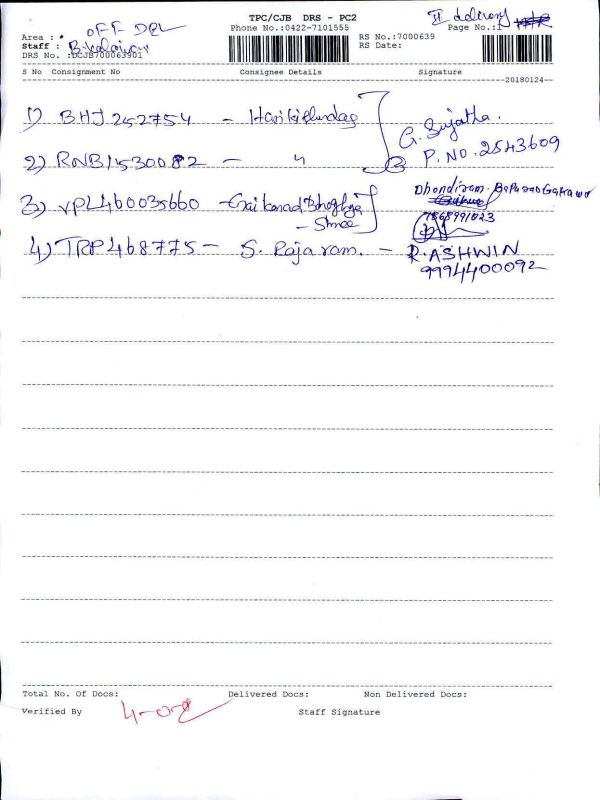 TPC/CJB DRS - PC2
OFF DEL
II delivery
Phone No.:0422-7101555
Page No.:1
Area :
RS No.:7000639
Staff : B.
RS Date:
DRS No. :DCJB700063901
S No Consignment No Consignee Details Signature
20180124
1) BHJ252754 - Harikishndas
G. Sujatha.
P.NO. 2543609
2) RNB1530082 - "
Dhondiram
3) VPL460035660
- Shree
4) TRP468775 - S. Rajaram. - R. ASHWIN
9994400092
Total No. Of Docs: Delivered Docs: Non Delivered Docs:
Verified By Staff Signature